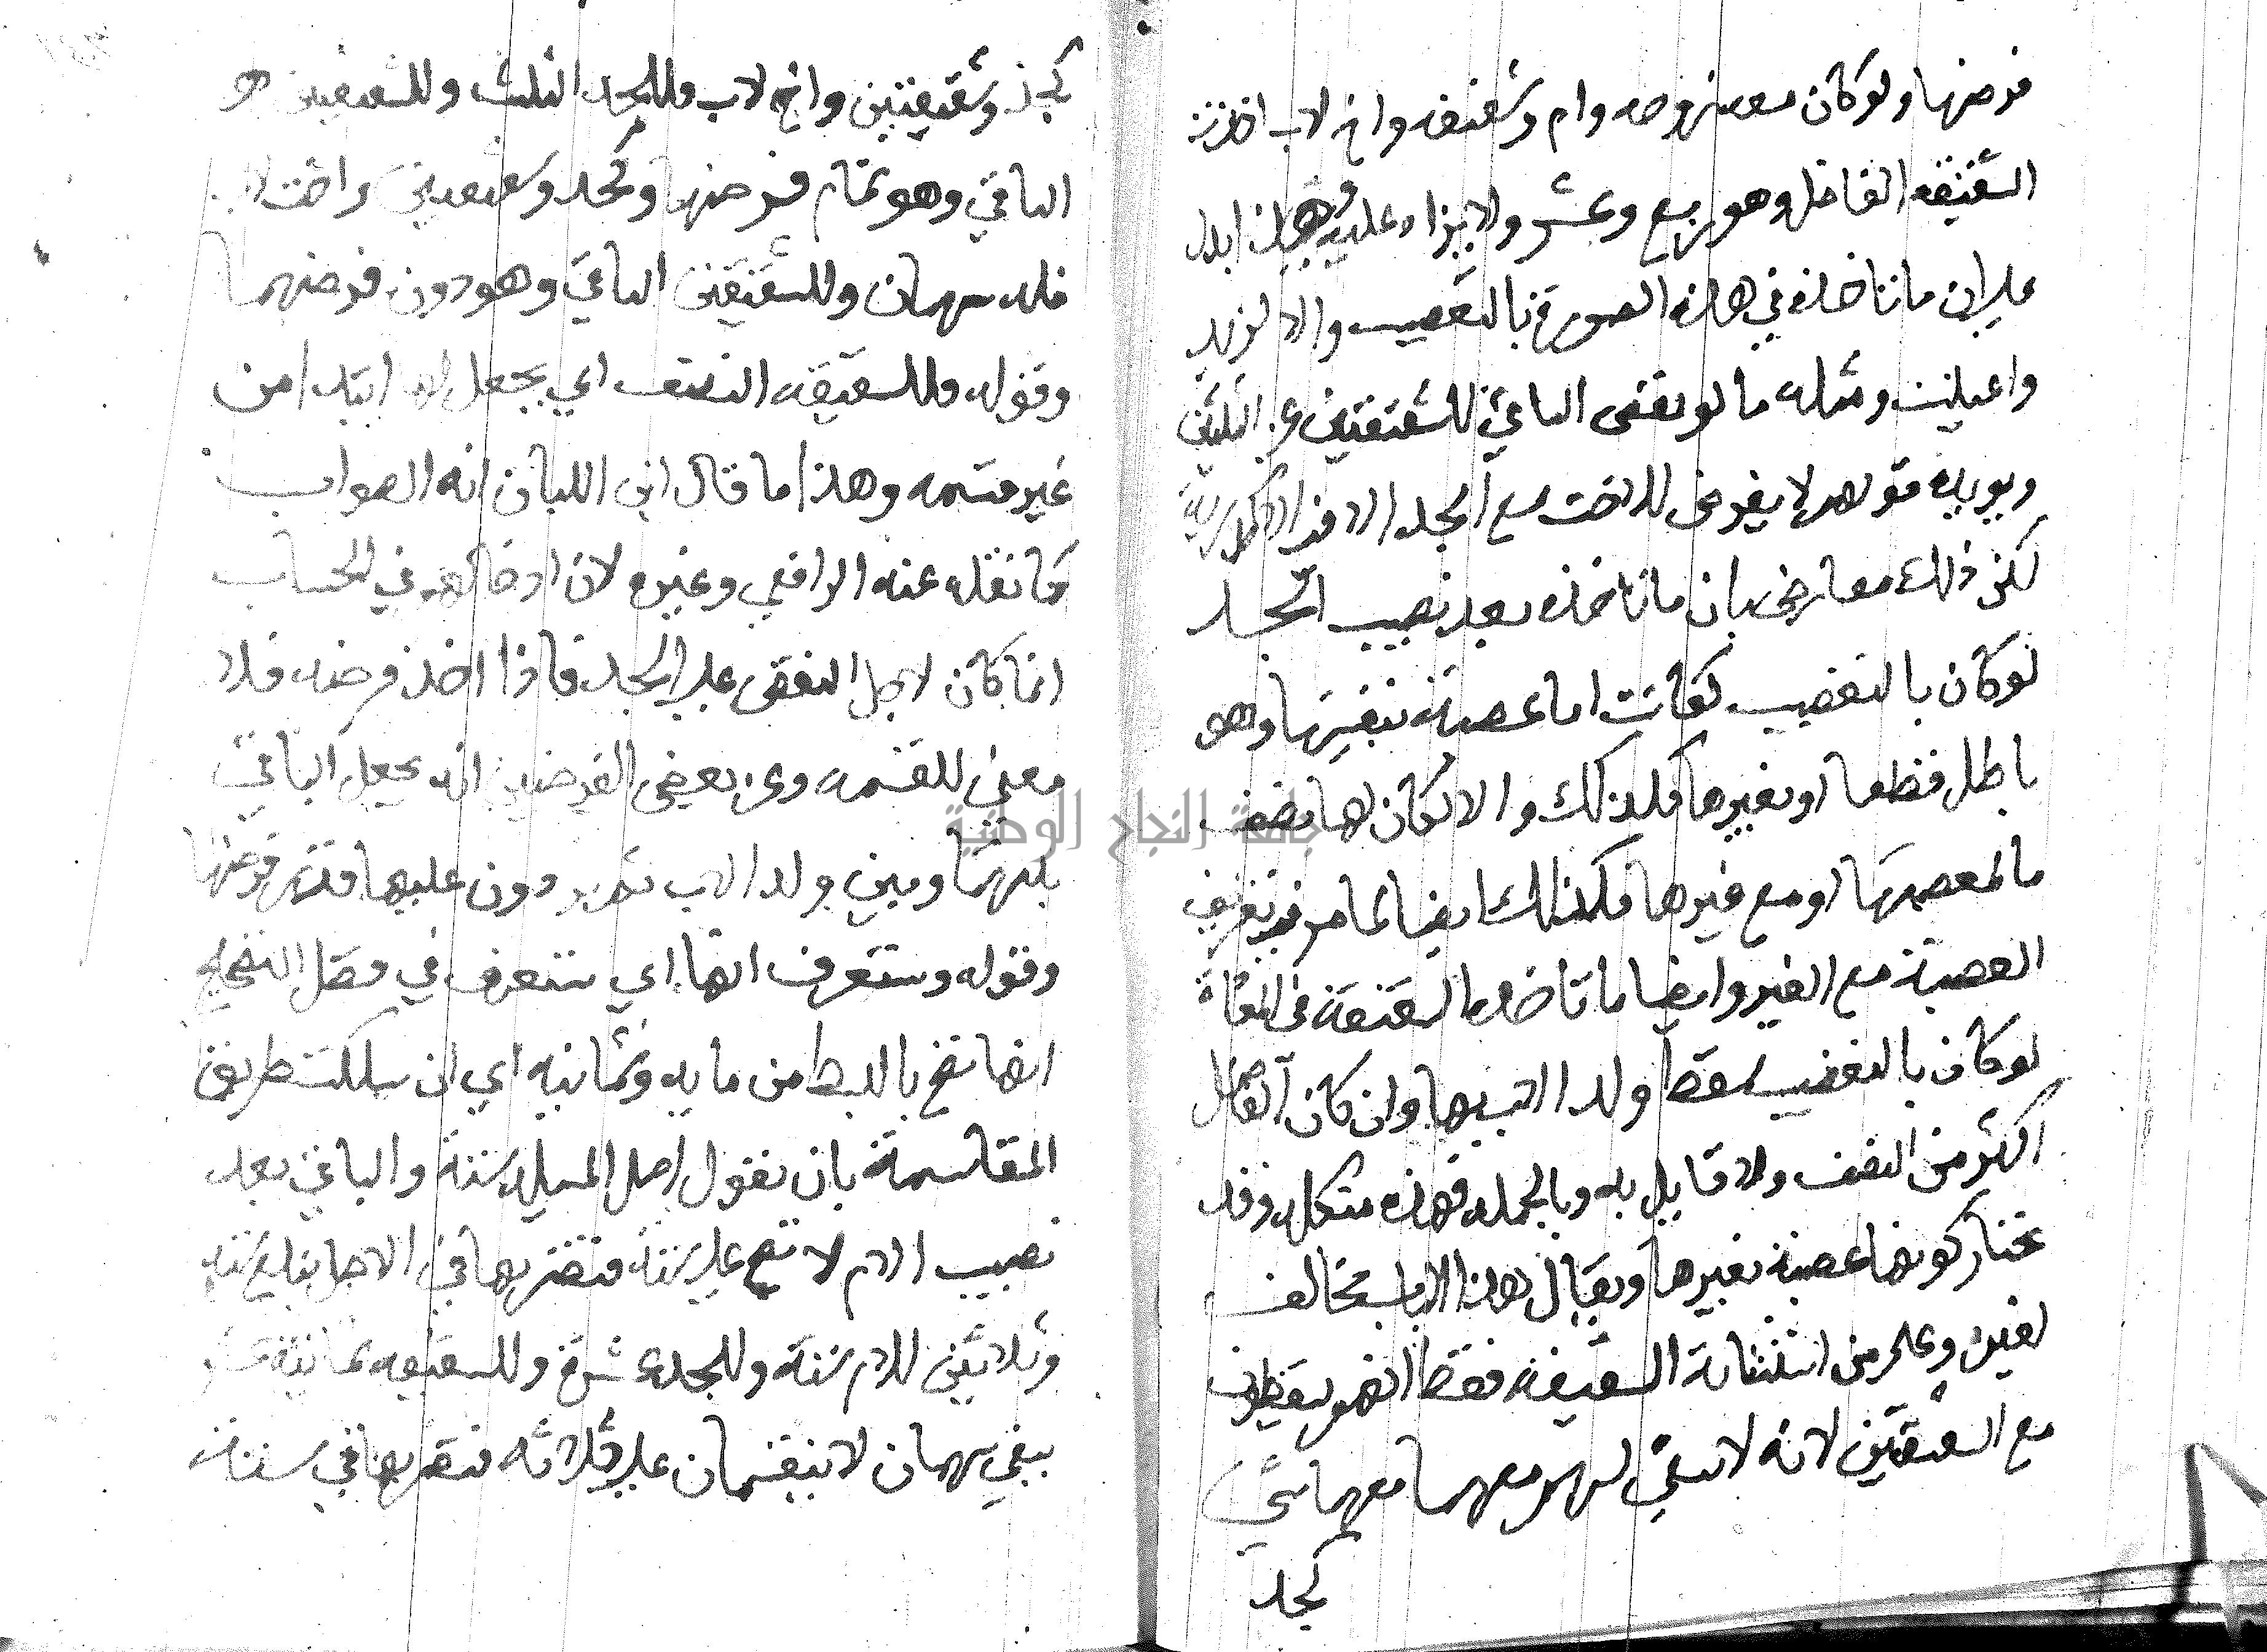 فرضها ولو كان معه زوجه وام وشقيقه واخ لاب اخذت
الشقيقه الفاضل وهو ربع وعشر ولا يزاد عليه وهذا يدل
على ان ما تاخذه في هذه الصورة بالتعصيب والا لزيد
واعيلت ومثله ما لو نقص الباقي للشقيقتين عن الثلثين
ويويده قولهم لا يفرض للاخت مع الجد الا في الاكدرية
لكن ذلك معارض بان ما تاخذه بعد نصيب الجد
لو كان بالتعصيب لكانت اما عصبة بنفسها وهو
باطل قطعا او بغيرها فكذلك والا لكان لها نصف
ما لمعصبها او مع غيرها فكذلك ايضا لما مر في تعريف
العصبة مع الغير وايضا ما تاخذه الشقيقة في المعادة
لو كان بالتعصيب لسقط ولد الاب بها وان كان الفاضل
اكثر من النصف ولا قايل به وبالجمله فهذه مشكله وقد
يختار كونها عصبة بغيرها ويقال هذا الباب مخالف
لغيره وعلم من استثنائه الشقيقه فقط انهم يسقطون
مع الشقيقتين لانه لا يبقى لهم معهما شي
كجد
كجد وشقيقتين واخ لاب فللجد الثلث وللشقيقتين
الباقي وهو تمام فرضهما وكجد وشقيقتين واخت لاب
فله سهمان وللشقيقتين الباقي وهو دون فرضهما
وقوله وللشقيقه النصف اي يجعل لها ابتدا من
غير قسمه وهذا ما قال ابن اللبان انه الصواب
كما نقله عنه الرافعي وغيره لان ادخالهم في الحساب
انما كان لاجل النقص على الجد فاذا اخذ فرضه فلا
معنى للقسمه وعن بعض الفرضيين انه يجعل الباقي
بينها وبين ولد الاب ثم يردون عليها قدر فرضها
وقوله وستعرف انها اي ستعرف في فصل التصحيح
انها تصح بالبسط من مايه وثمانيه اي ان سلكت طريق
المقاسمة بان تقول اصل المسيله ستة والباقي بعد
نصيب الام لا يصح على ستة فتضربها في الاصل تبلغ ستة
وثلاثين للام ستة وللجد عشرة وللشقيقه ثمانية عشر
يبقى سهمان لا ينقسمان على ثلاثه فتضربها في ستة
جامعة النجاح الوطنية